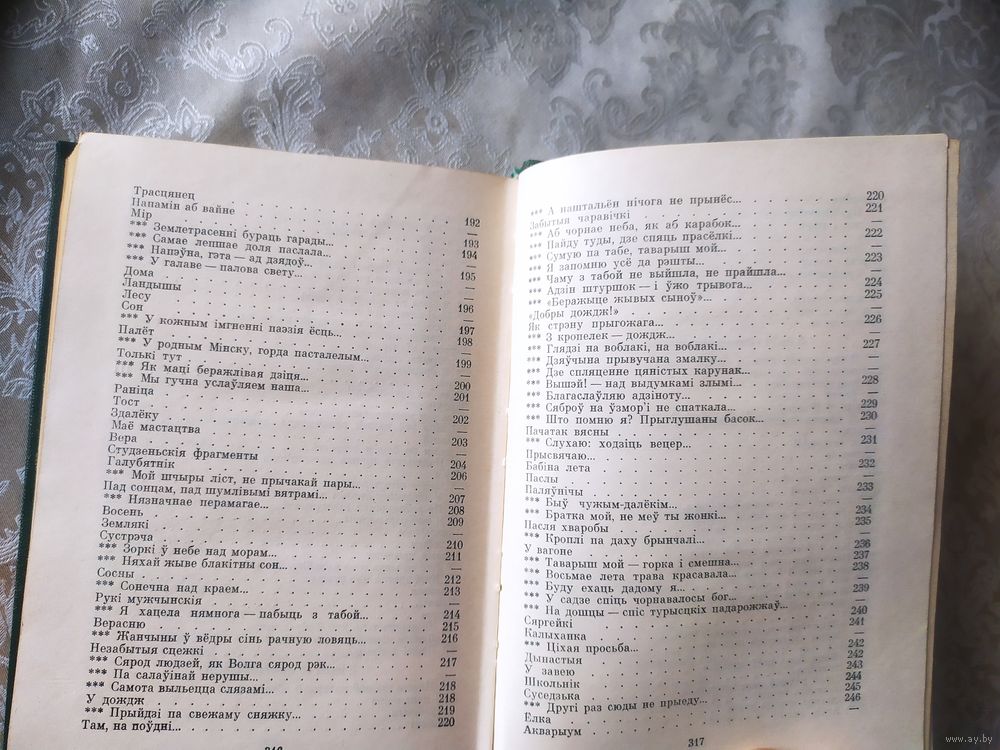 Трасцянец 192
Напамін аб вайне —
Мір 193
*** Землетрасенні бураць гарады... 194
*** Самае лепшае доля паслала... —
*** Напэўна, гэта — ад дзядоў... 195
*** У галаве — палова свету... —
Дома —
Ландышы 196
Лесу —
Сон 197
*** У кожным імгненні паэзія ёсць... 198
Палёт —
*** У родным Мінску, горда пасталелым... 199
Толькі тут —
*** Як маці беражлівая дзіця... 200
*** Мы гучна услаўляем наша... 201
Раніца —
Тост 202
Здалёку —
Маё мастацтва 203
Вера —
Студзеньскія фрагменты 204
Галубятнік 206
*** Мой шчыры ліст, не прычакай пары... —
Пад сонцам, пад шумлівымі вятрамі... 207
*** Нязначнае перамагае... 208
Восень 209
Землякі —
Сустрэча 210
*** Зоркі ў небе над морам... 211
*** Няхай жыве блакітны сон... —
Сосны 212
*** Сонечна над краем... 213
Рукі мужчынскія —
*** Я хацела нямнога — пабыць з табой... 214
Верасню 215
*** Жанчыны ў вёдры сінь рачную ловяць... 216
Незабытыя сцежкі —
*** Сярод людзей, як Волга сярод рэк... 217
*** Па салаўінай нерушы... —
*** Самота выльецца слязамі... 218
У дождж 218
*** Прыйдзі па свежаму сняжку... 219
Там, на поўдні... 220
*** А паштальён нічога не прынёс... 220
Забытыя чаравічкі 221
*** Аб чорнае неба, як аб карабок... —
*** Пайду туды, дзе спяць прасёлкі... 222
*** Сумую па табе, таварыш мой... —
*** Я запомню усё да рэшты... 223
*** Чаму з табой не выйшла, не прайшла... —
*** Адзін штуршок — і ўжо трывога... 224
*** «Беражыце жывых сыноў»... 225
«Добры дождж!» —
Як стрэну прыгожага... 226
*** З кропелек — дождж... —
*** Глядзі на воблакі, на воблакі... 227
*** Дзяўчына прывучана змалку... —
*** Дзе спляценне цяністых карунак... —
*** Вышэй! — над выдумкамі злымі... 228
*** Благаслаўляю адзіноту... —
*** Сяброў на ўзмор'і не спаткала... 229
*** Што помню я? Прыглушаны басок... 230
Пачатак вясны —
*** Слухаю: ходзіць вецер... 231
Прысвячаю... —
Бабіна лета 232
Паслы —
Паляўнічы 233
*** Быў чужым-далёкім... —
*** Братка мой, не меў ты жонкі... 234
Пасля хваробы 235
*** Кроплі па даху брынчалі... —
У вагоне 236
*** Таварыш мой — горка і смешна... 237
*** Восьмае лета трава красавала... 238
*** Буду ехаць дадому я... —
*** У садзе спіць чорнавалосы бог... 239
*** На дошцы — спіс турысцкіх падарожжаў... —
Сяргейкі 240
Калыханка 241
*** Ціхая просьба... —
Дынастыя 242
У завею 242
Школьнік 243
Суседзька 244
*** Другі раз сюды не прыеду... 245
Ёлка 246
Акварыум —
317
www.ay.by